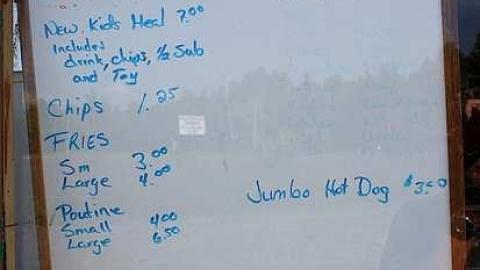 New Kids Meal 7.00
Includes
drink, chips, 1/2 Sub
and Toy
Chips 1.25
FRIES
Sm 3.00
Large 4.00
Poutine
Small 4.00
Large 6.50
Jumbo Hot Dog $3.50